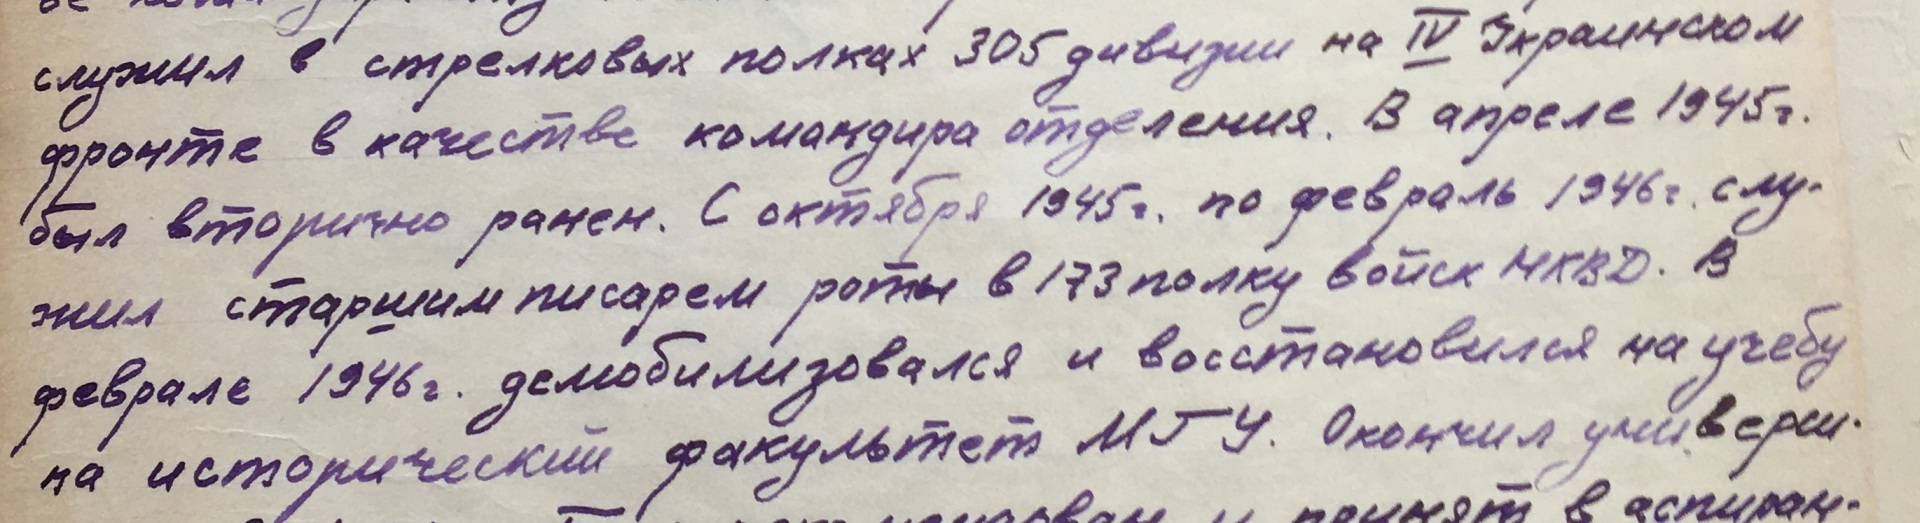 служил в стрелковых полках 305 дивизии на IV Украинском
фронте в качестве командира отделения. В апреле 1945г.
был вторично ранен. С октября 1945г. по февраль 1946г. слу-
жил старшим писарем роты в 173 полку войск НКВД. В
феврале 1946г. демобилизовался и восстановился на учебу
на исторический факультет МГУ. Окончил универси-
и принят в аспиран-